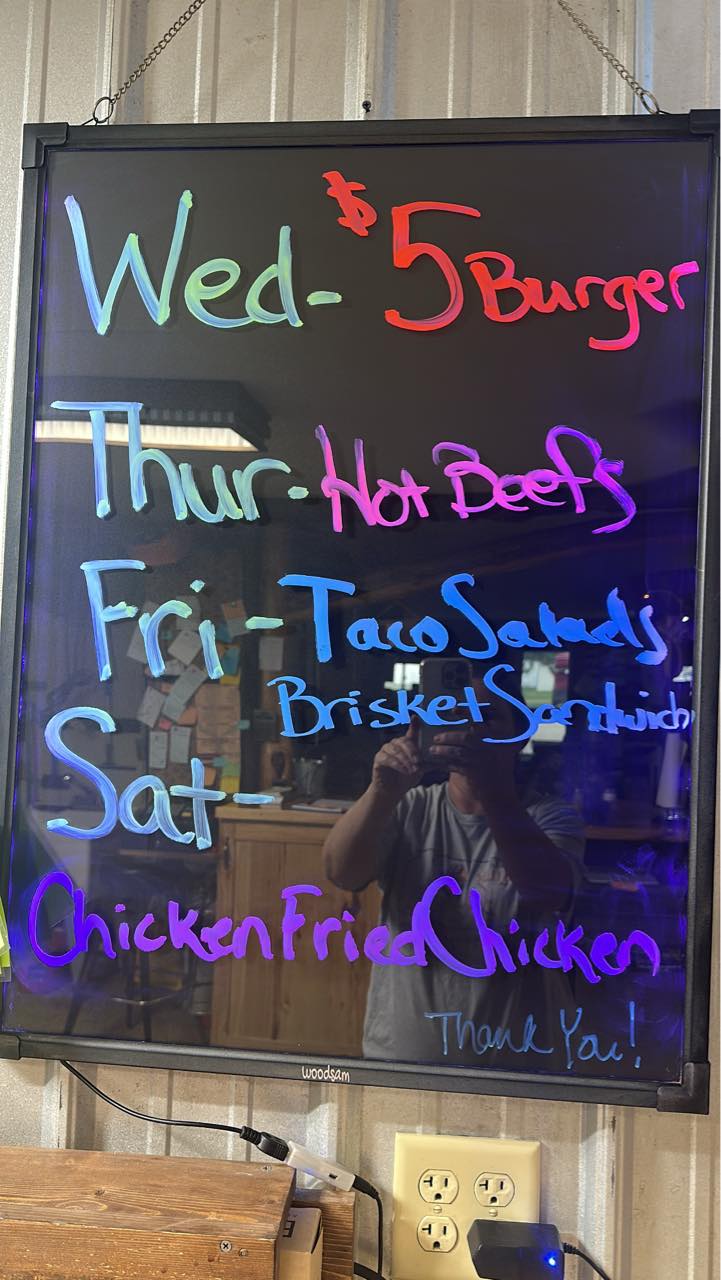 Wed- $5 Burger
Thur- Hot Beefs
Fri- Taco Salads
Brisket Sandwich
Sat-
Chicken Fried Chicken
Thank You!
woodsam